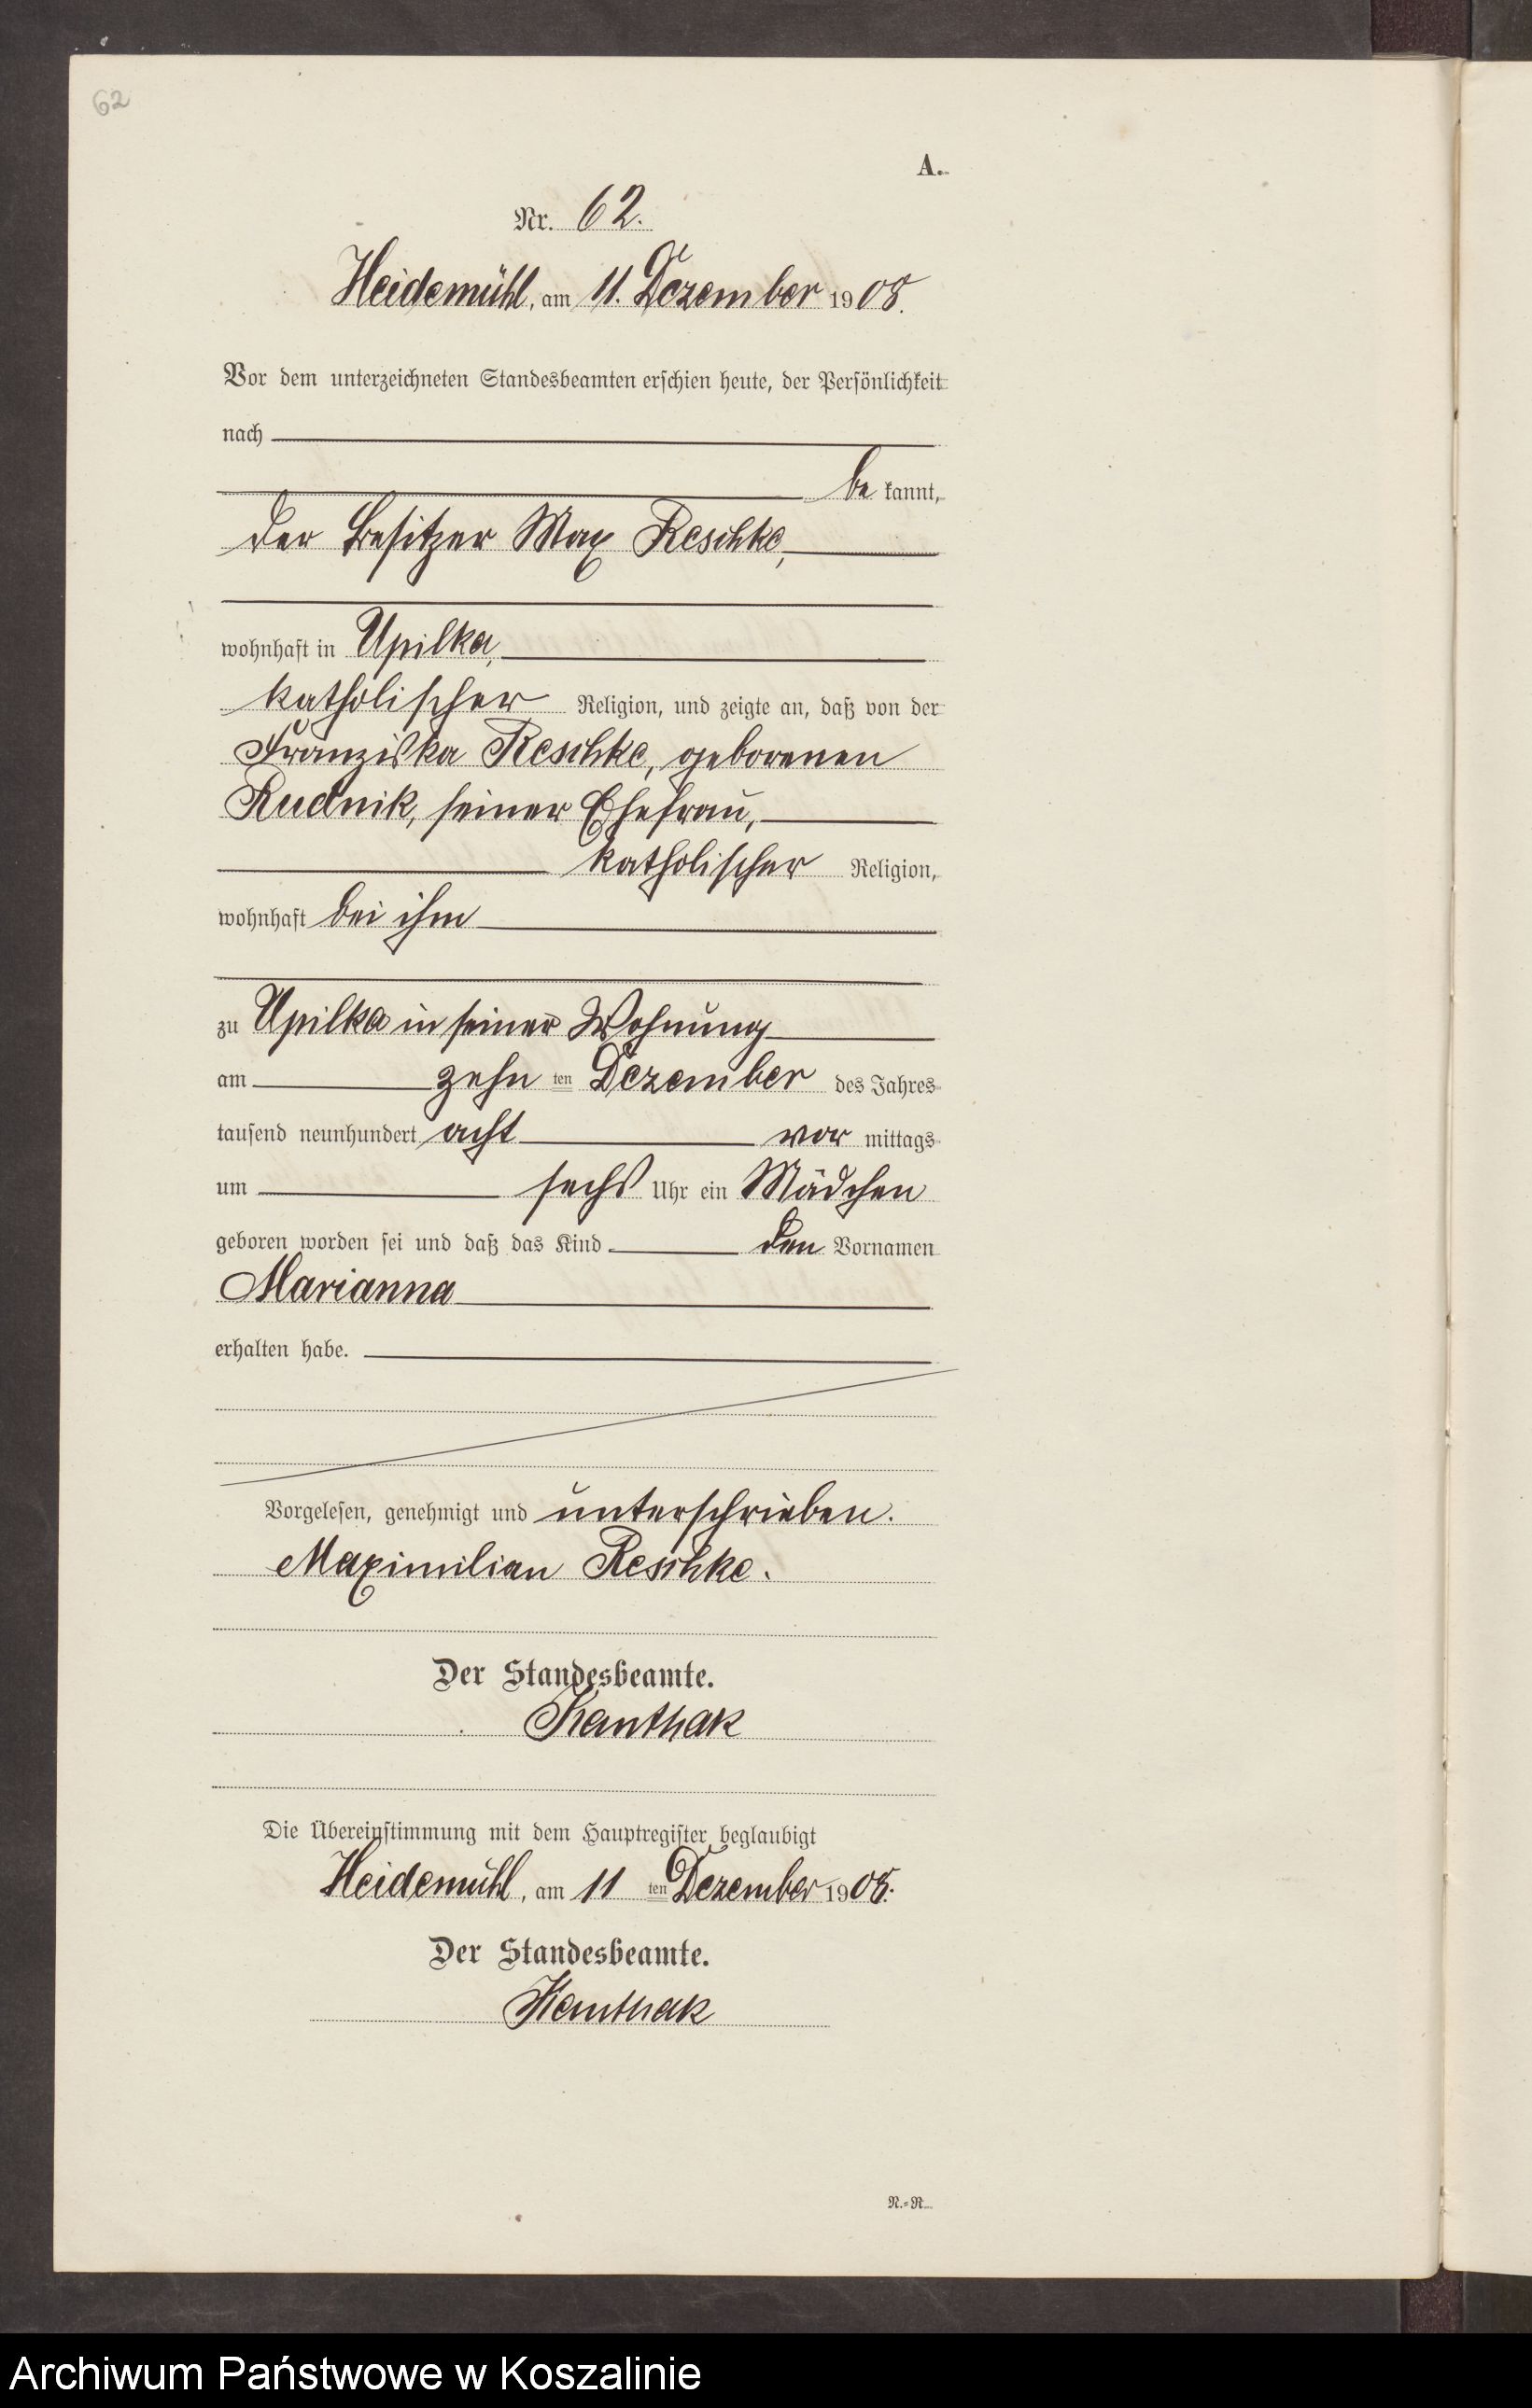 62
A.
Nr. 62.
Heidemühl, am 11. Dezember 1908.
Vor dem unterzeichneten Standesbeamten erschien heute, der Persönlichkeit
nach
be kannt,
der Besitzer Max Reschke,
wohnhaft in Upilka,
katholischer Religion, und zeigte an, daß von der
Franziska Reschke, geborenen
Rudnik, seiner Ehefrau,
katholischer Religion,
wohnhaft bei ihm
zu Upilka in seiner Wohnung
am zehn ten Dezember des Jahres
tausend neunhundert acht vor mittags
um sechs Uhr ein Mädchen
geboren worden sei und daß das Kind den Vornamen
Marianna
erhalten habe.
Vorgelesen, genehmigt und unterschrieben.
Maximilian Reschke.
Der Standesbeamte.
Kanthak
Die Übereinstimmung mit dem Hauptregister beglaubigt
Heidemühl, am 11 ten Dezember 1908.
Der Standesbeamte.
Kanthak
N.=R.
Archiwum Państwowe w Koszalinie